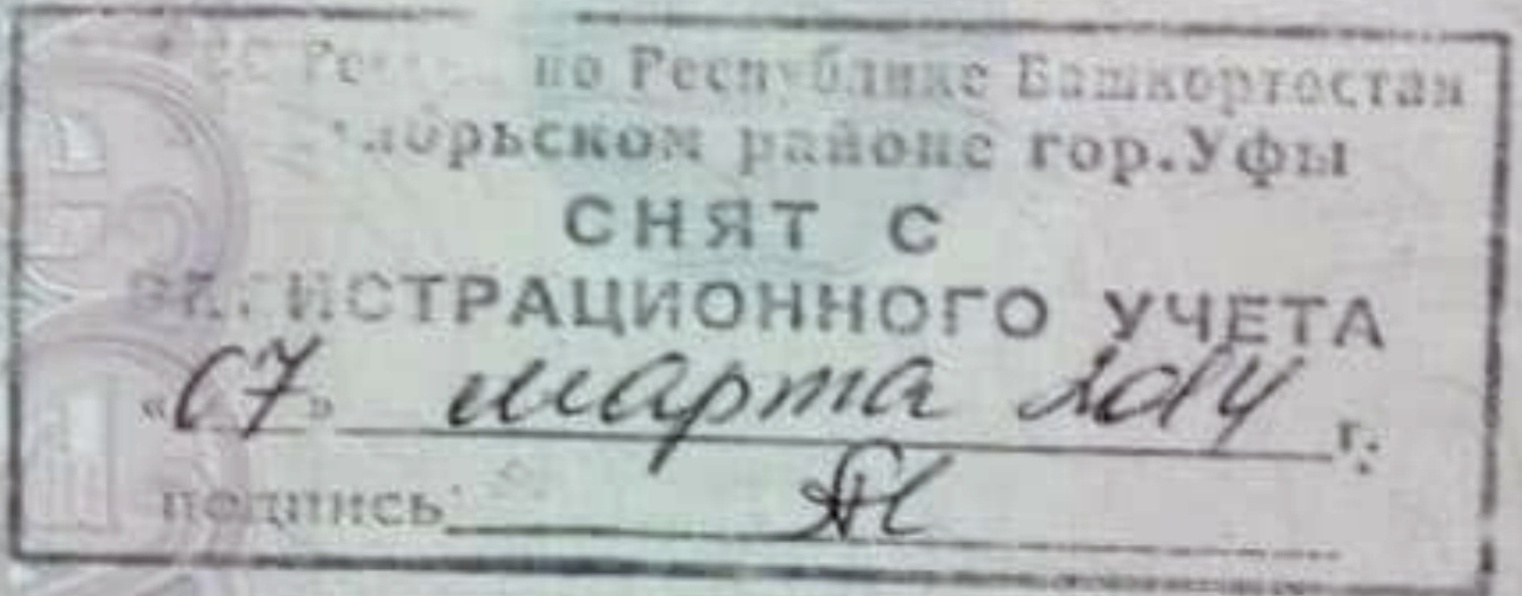 по Республике Башкортостан
районе гор.Уфы
СНЯТ С
РЕГИСТРАЦИОННОГО УЧЕТА
«07» марта 2014 г.
подпись